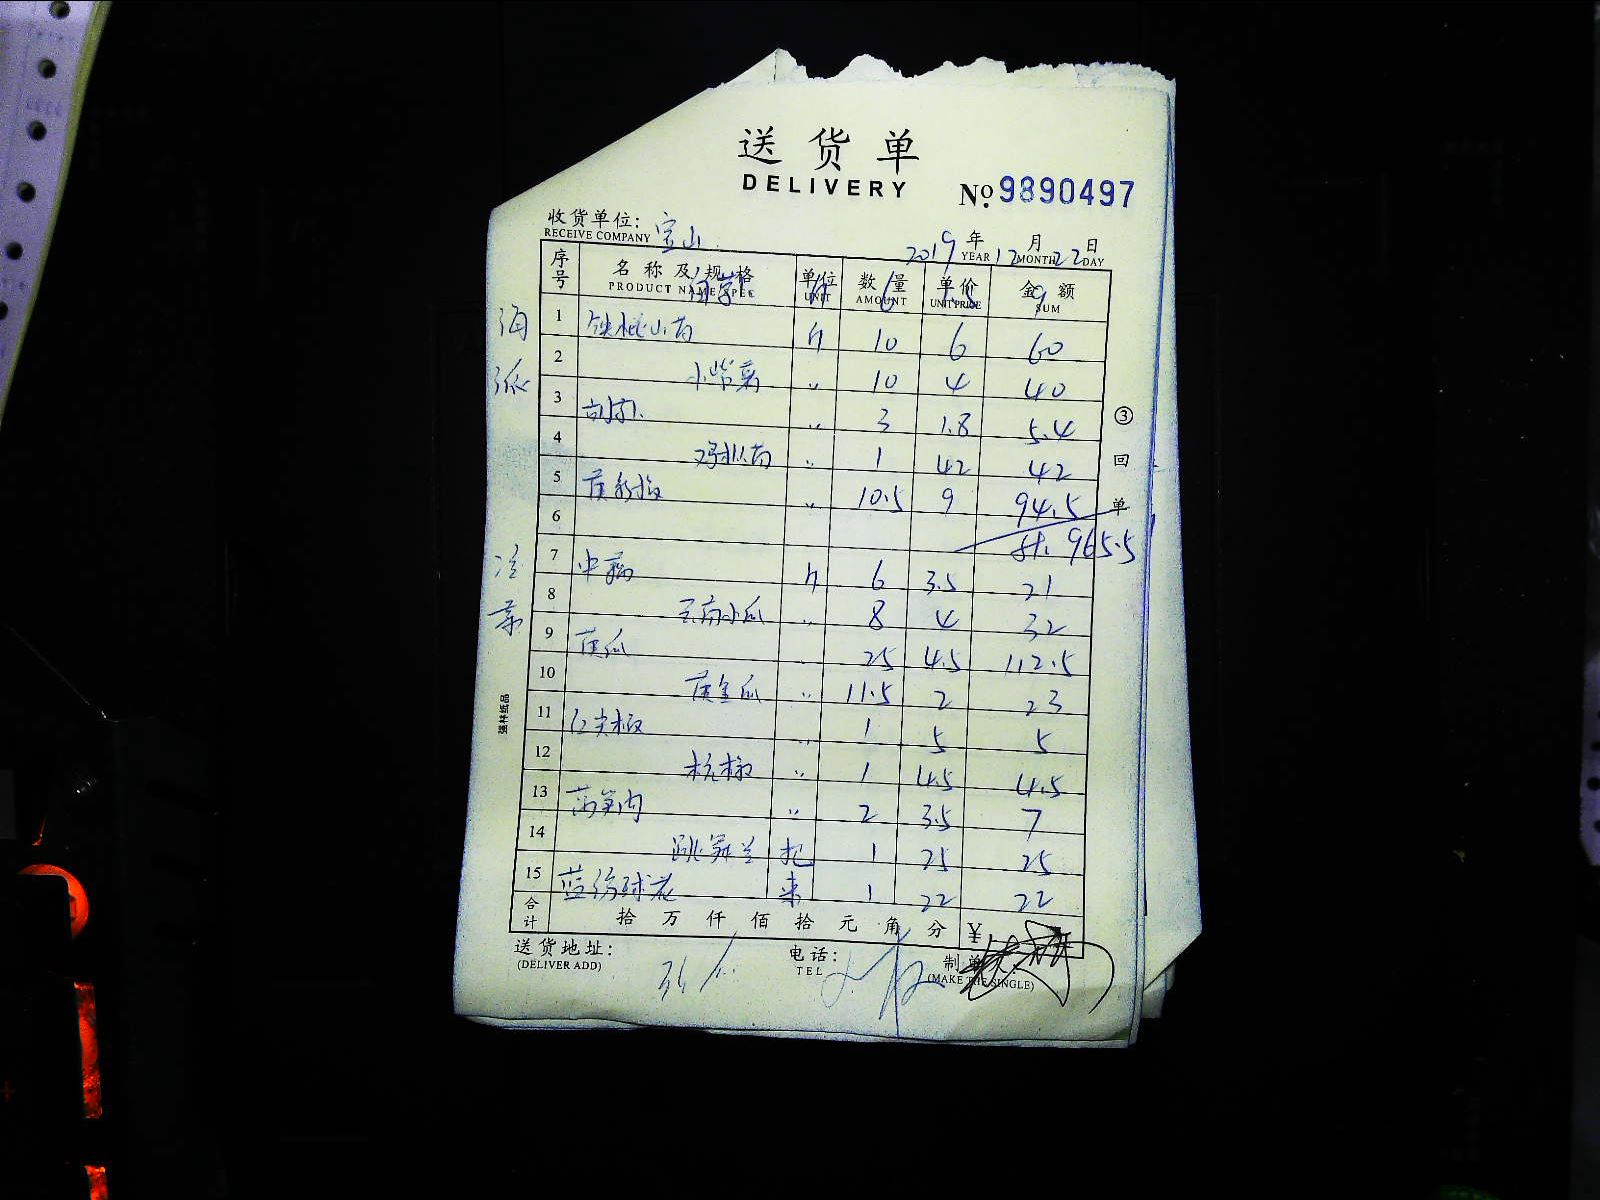 送货单
DELIVERY
No.9890497
收货单位: 宝山
RECEIVE COMPANY
2019年12月22日
YEAR MONTH DAY
序号 名称及规格 单位 数量 单价 金额
PRODUCT NAME/SPEC UNIT AMOUNT UNIT PRICE SUM
1 铁棍山药 斤 10 6 60
2 小紫薯 〃 10 4 40
3 〃 3 1.8 5.4
4 鸡枞菌 〃 1 42 42
5 黄彩椒 〃 10.5 9 94.5
6 计. 965.5
7 斤 6 3.5 21
8 小瓜 〃 8 4 32
9 黄瓜 25 4.5 112.5
10 黄金瓜 〃 11.5 2 23
11 红尖椒 〃 1 5 5
12 杭椒 〃 1 4.5 4.5
13 莴笋肉 〃 2 3.5 7
14 跳舞兰 把 1 25 25
15 蓝绣球花 束 1 22 22
合计 拾 万 仟 佰 拾 元 角 分 ¥
送货地址:
(DELIVER ADD)
电话:
TEL
制单
(MAKE THE SINGLE)
③回单
强林纸品
海派
冷菜